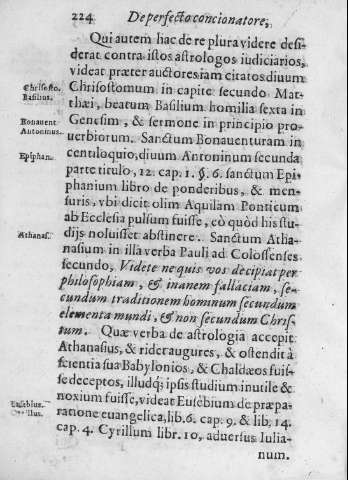 224 De perfecto concionatore,
Qui autem hac de re plura videre desi-
derat contra istos astrologos iudiciarios,
videat præter auctores iam citatos diuum
Chrisosto. Chrisostomum in capite secundo Mat-
Basilius. thæi, beatum Basilium homilia sexta in
Genesim, & sermone in principio pro-
Bonauent. uerbiorum. Sanctum Bonauenturam in
Antoninus. centiloquio, diuum Antoninum secunda
Epiphan. parte titulo, 12. cap. 1. §. 6. sanctum Epi-
phanium libro de ponderibus, & men-
suris, vbi dicit olim Aquilam Ponticum
ab Ecclesia pulsum fuisse, eò quòd his stu-
Athanas. dijs noluisset abstinere. Sanctum Atha-
nasium in illa verba Pauli ad Colossenses
secundo, Videte ne quis vos decipiat per
philosophiam, & inanem fallaciam, se-
cundum traditionem hominum secundum
elementa mundi, & non secundum Chris-
tum. Quæ verba de astrologia accepit
Athanasius, & rider augures, & ostendit à
scientia sua Babylonios, & Chaldæos fuis-
se deceptos, illudq; ipsis studium inutile &
Eusebius. noxium fuisse, videat Eusebium de præpa-
Cyrillus. ratione euangelica, lib. 6. cap. 9. & lib. 14.
cap. 4. Cyrillum libr. 10, aduersus Iulia-
num.